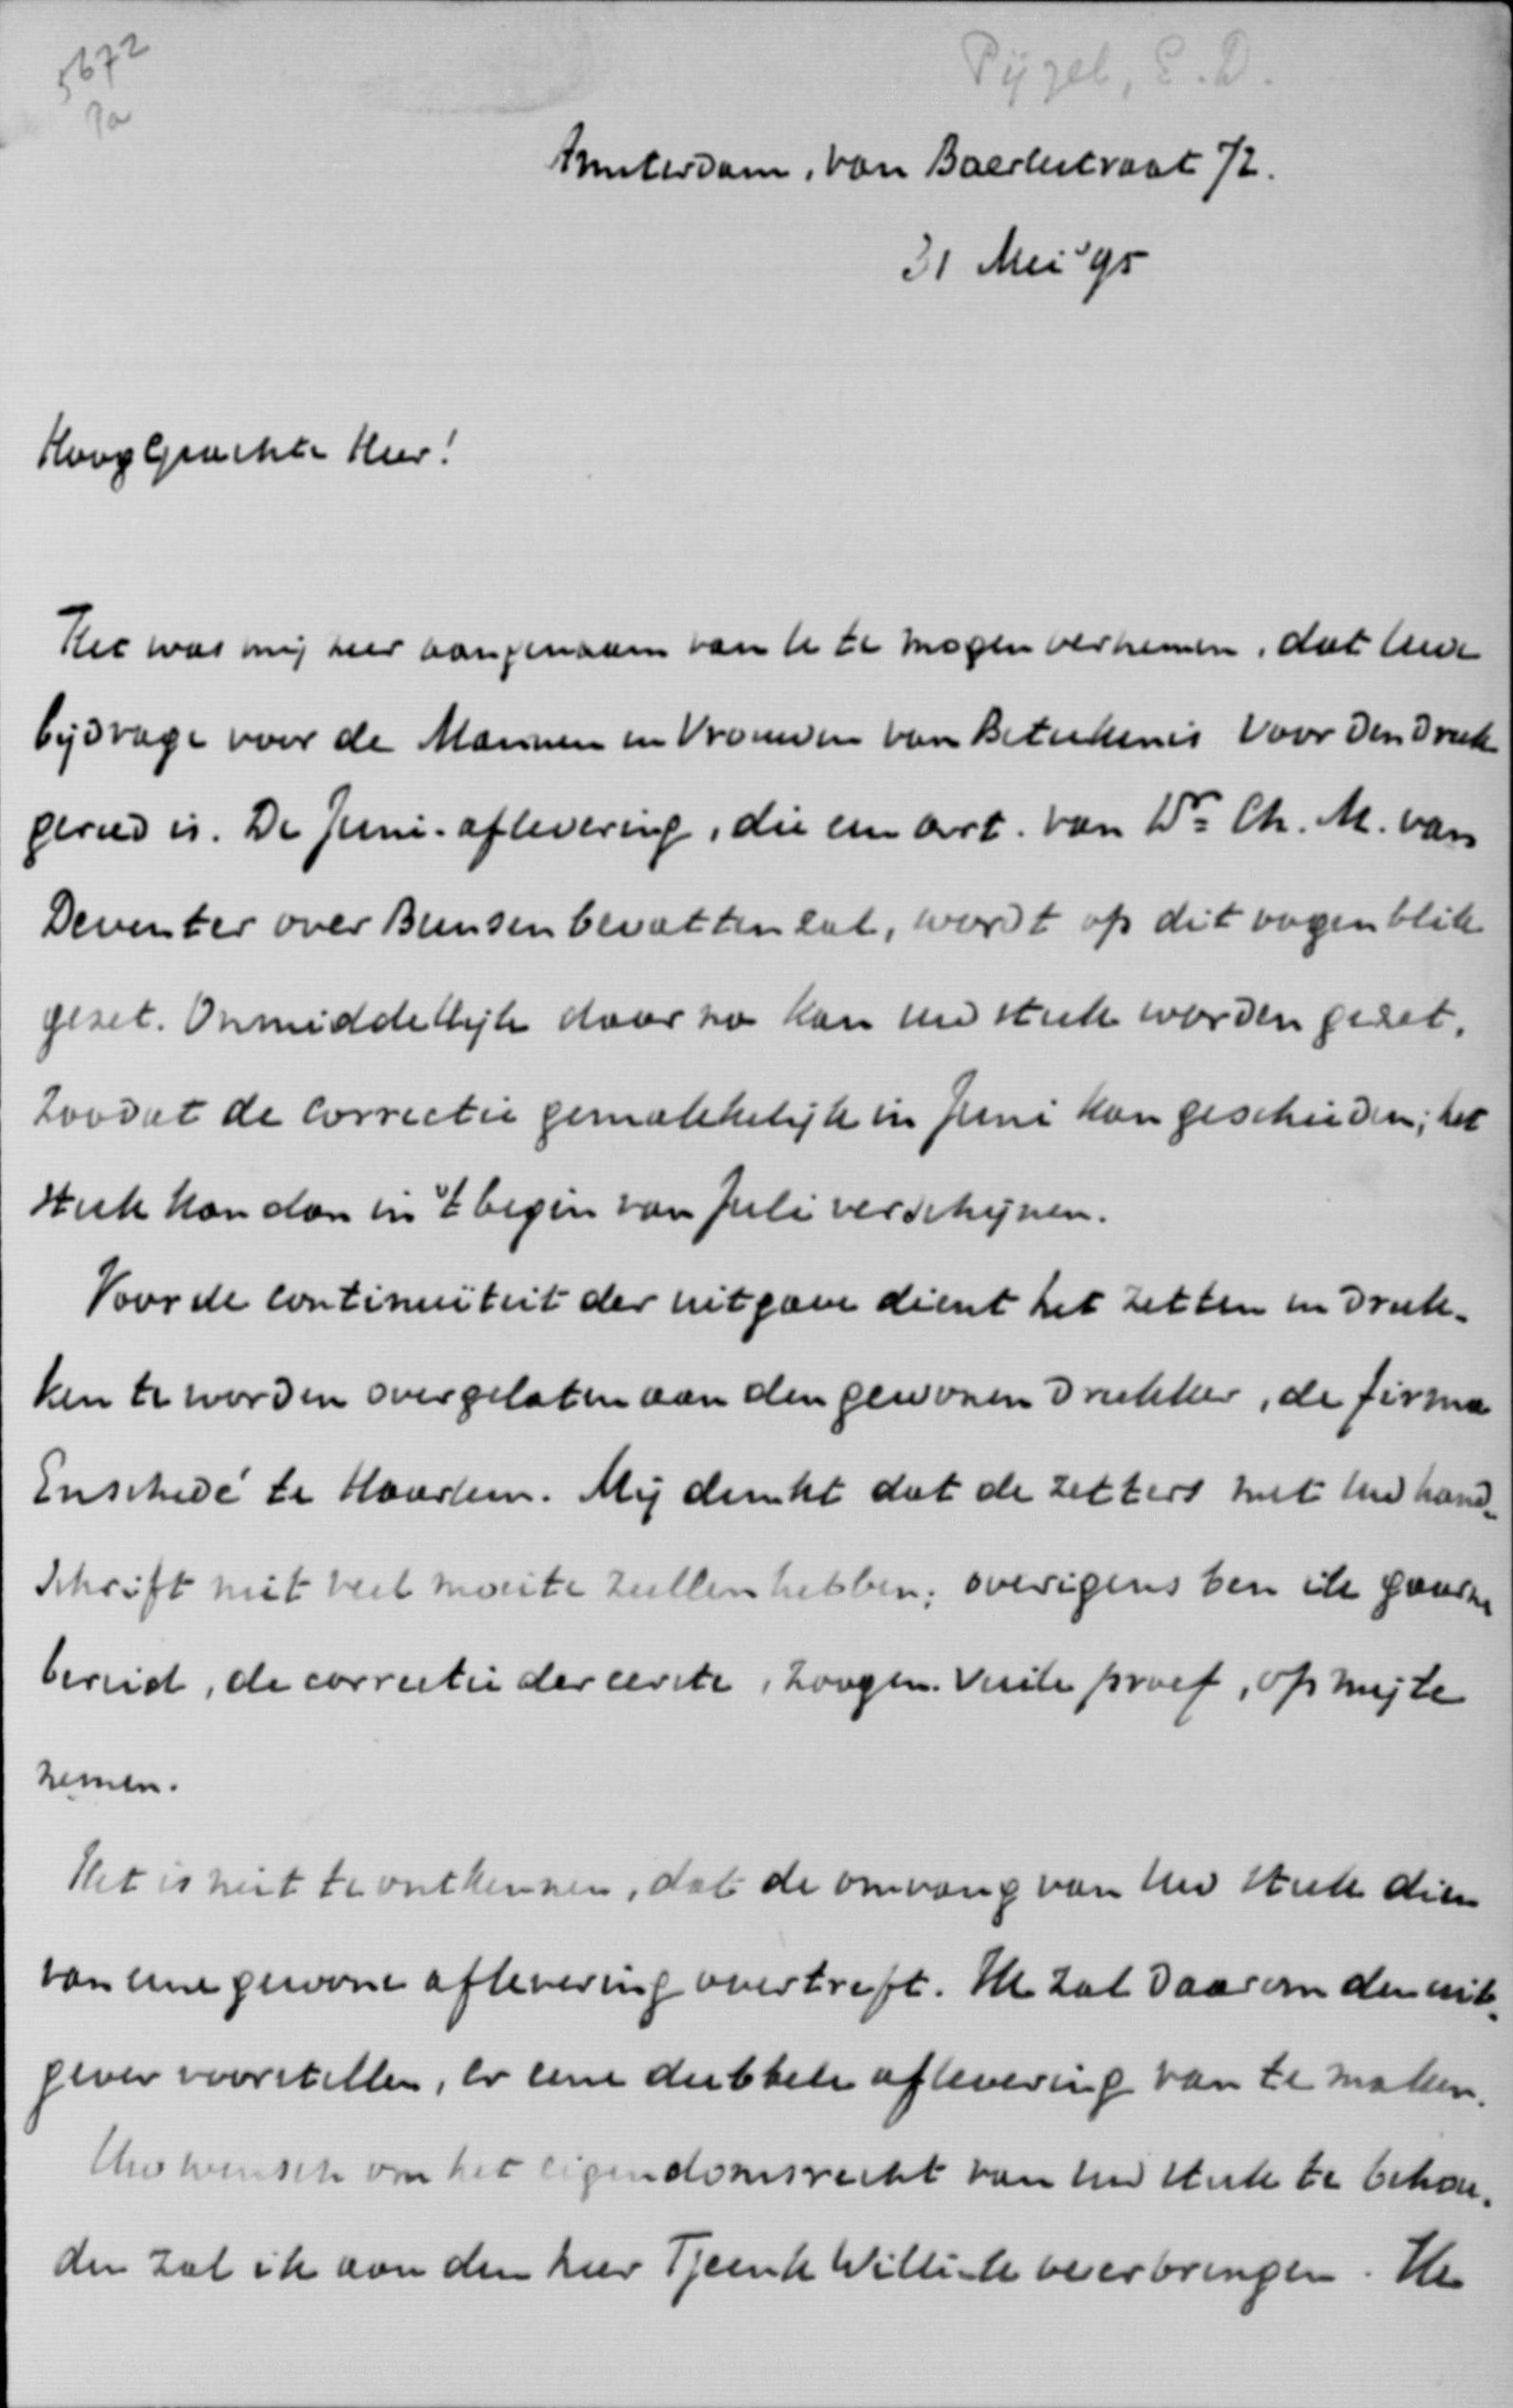 5672
Pa
Pijzel, E. D.
Amsterdam, van Baerlestraat 72.
31 Mei '95
HoogGeachte Heer!
Het was mij zeer aangenaam van U te mogen vernemen, dat Uwe
bijdrage voor de Mannen en Vrouwen van Beteekenis voor den druk
gereed is. De Juni-aflevering, die een art. van Dr. Ch. M. van
Deventer over Bunsen bevatten zal, wordt op dit oogenblik
gezet. Onmiddellijk daarna kan uw stuk worden gezet,
zoodat de correctie gemakkelijk in Juni kan geschieden; het
stuk kan dan in 't begin van Juli verschijnen.
Voor de continuïteit der uitgave dient het zetten en druk-
ken te worden overgelaten aan den gewonen drukker, de firma
Enschedé te Haarlem. Mij dunkt dat de zetters met Uw hand-
schrift niet veel moeite zullen hebben; overigens ben ik gaarne
bereid, de correctie der eerste, zoogen. vuile proef, op mij te
nemen.
Het is niet te ontkennen, dat de omvang van Uw stuk dien
van eene gewone aflevering overtreft. Ik zal daarom den uit-
gever voorstellen, er eene dubbele aflevering van te maken.
Uw wensch om het eigendomsrecht van uw stuk te behou-
den zal ik aan den heer Tjeenk Willink overbringen. Ik